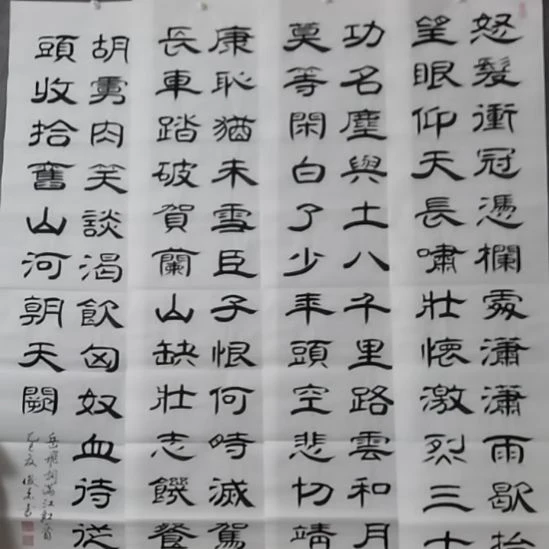 怒髮衝冠憑欄處瀟瀟雨歇抬
望眼仰天長嘯壯懷激烈三十
功名塵與土八千里路雲和月
莫等閑白了少年頭空悲切靖
康恥猶未雪臣子恨何時滅駕
長車踏破賀蘭山缺壯志饑餐
胡虜肉笑談渴飲匈奴血待從
頭收拾舊山河朝天闕
岳飛詞滿江紅首